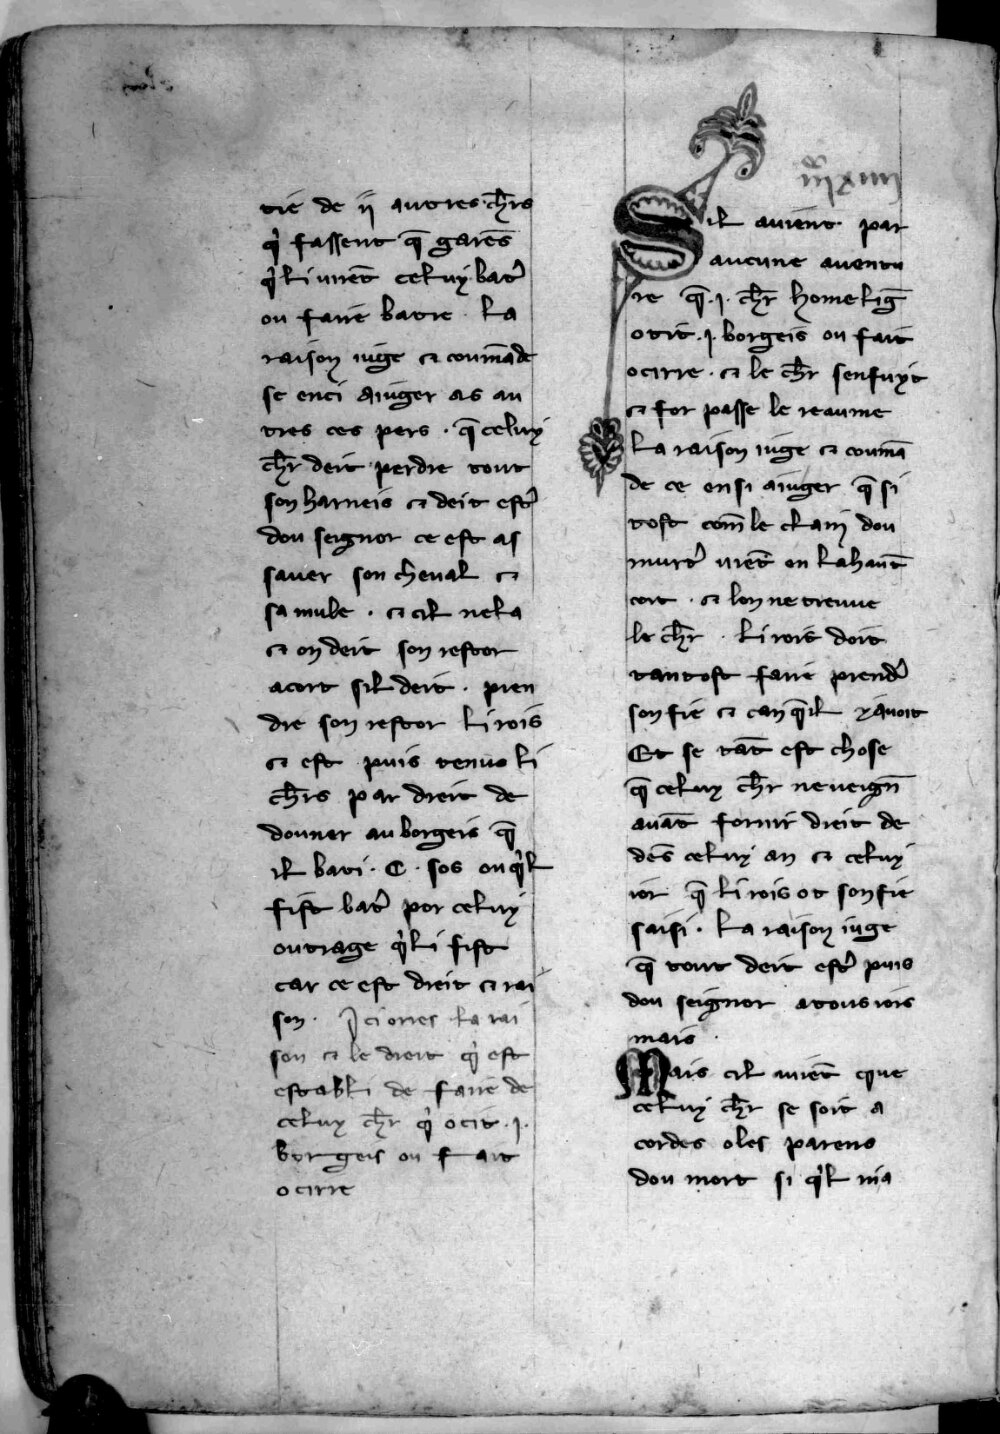 tie de ij autres ch̄rs
q̇ fassent q̄ garēs
q̇ li virēt celuy bat̉
ou faire batre · la
raison iuge ⁊ coumāde
se enci aiuger as au
tres ces pers · q̄ celuy
ch̄r deit perdre tout
son harneis ⁊ deit est̉
dou seignor ce est as
saver son cheval ⁊
sa mule · ⁊ cil ne la
⁊ on deit son restor
acort sil deit · pren
dre son restor li rois
⁊ est puis tenus li
ch̄rs par dreit de
donner au borgeis q̄
il bati · C · sos ou q̇l
fist bat̉ por celuy
outrage q̇ li fist
car ce est dreit ⁊ rai
son · Ici ores la rai
son ⁊ le dreit q̇ est
establi de faire de
celuy ch̄r q̇ ocit · j ·
borgeis ou fait
ocirre
Sil avient par
aucune aventu
re q̄ · j · ch̄r home liḡ
ocit · j · borgeis ou fait
ocirre · ⁊ le ch̄r senfuyt
⁊ for passe le reaume
la raison iuge ⁊ coumā
de ce ensi aiuger q̄ si
tost com̄ le claim dou
murt̉ viēt en la haut̄
cort · ⁊ lon ne treuve
le ch̄r · li rois doit
tantost faire prend̉
son fie ⁊ can q̄il y avoit
Et se tāt est chose
q̄ celuy ch̄r ne veign̄
avāt fornir dreit de
dēs celuy an ⁊ celuy
ior q̄ li rois ot son fie
saisi · la raison iuge
q̄ tout deit est̉ puis
dou seignor a tous iors
mais ·
Mais cil aviēt que
celuy ch̄r se soit a
cordes o les parens
dou mort si q̇l nia